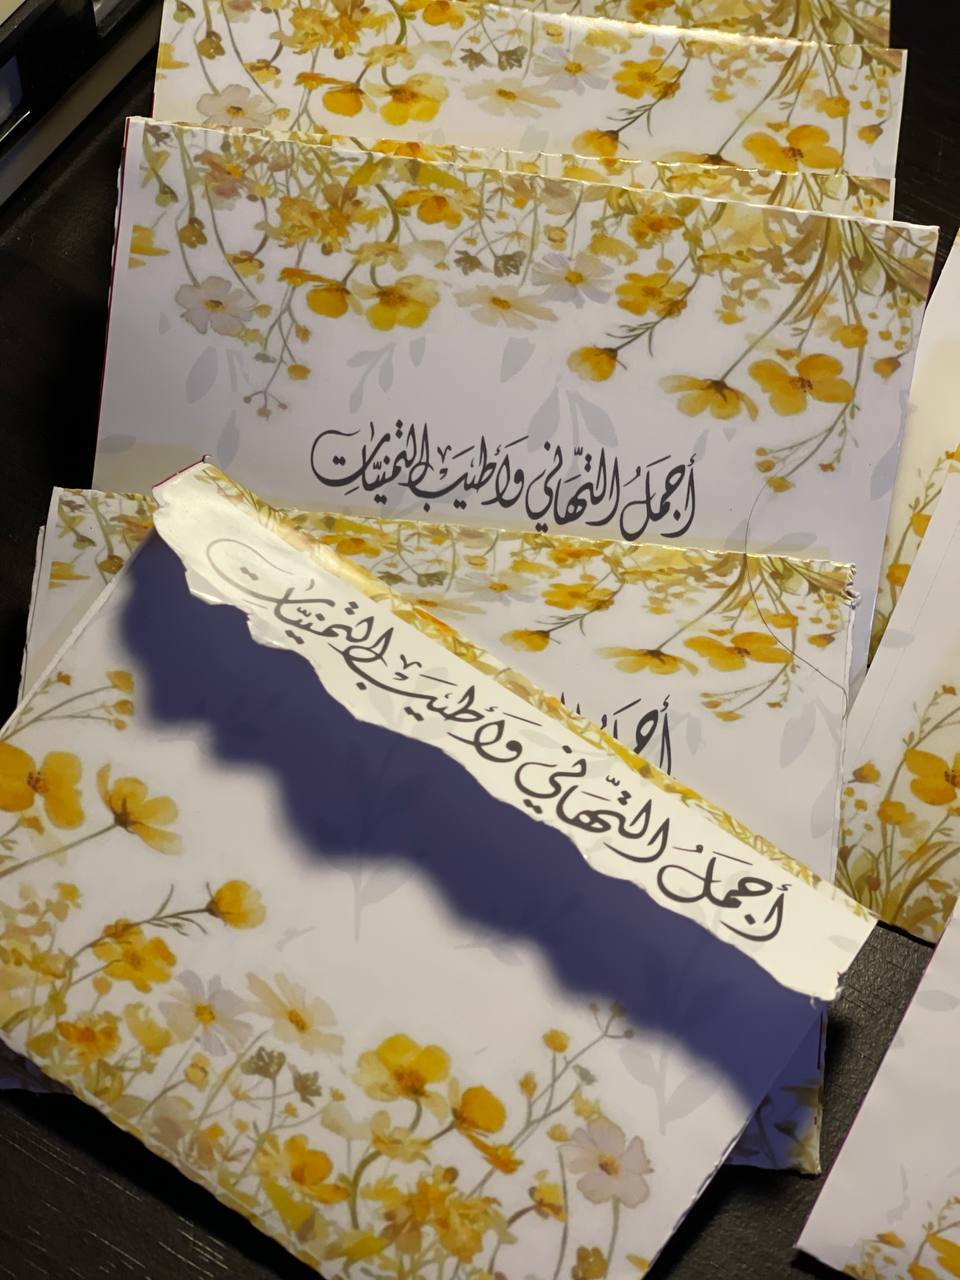 أَجْمَلُ التَّهَانِي وَأَطْيَبُ التَّمَنِّيَاتِ
أَجْمَلُ التَّهَانِي وَأَطْيَبُ التَّمَنِّيَاتِ
أجمل